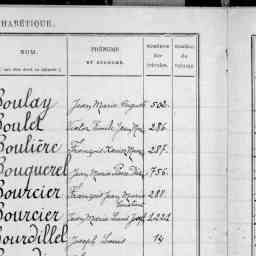 HABÉTIQUE.
NOM.
PRÉNOMS
ET SURNOMS.
NUMÉROS
des
articles.
NUMÉRO
du
volume
Boulay Jean Marie August 502
Boulet Victor Emile Jean Mie 286
Boulière François Xavier Marie 287
Bouquerel Jean Marie Pierre 756
Bourcier François Jean Marie 288
Bourcier Jean Marie Louis Jos 1221
Bourdillel Joseph Louis 14